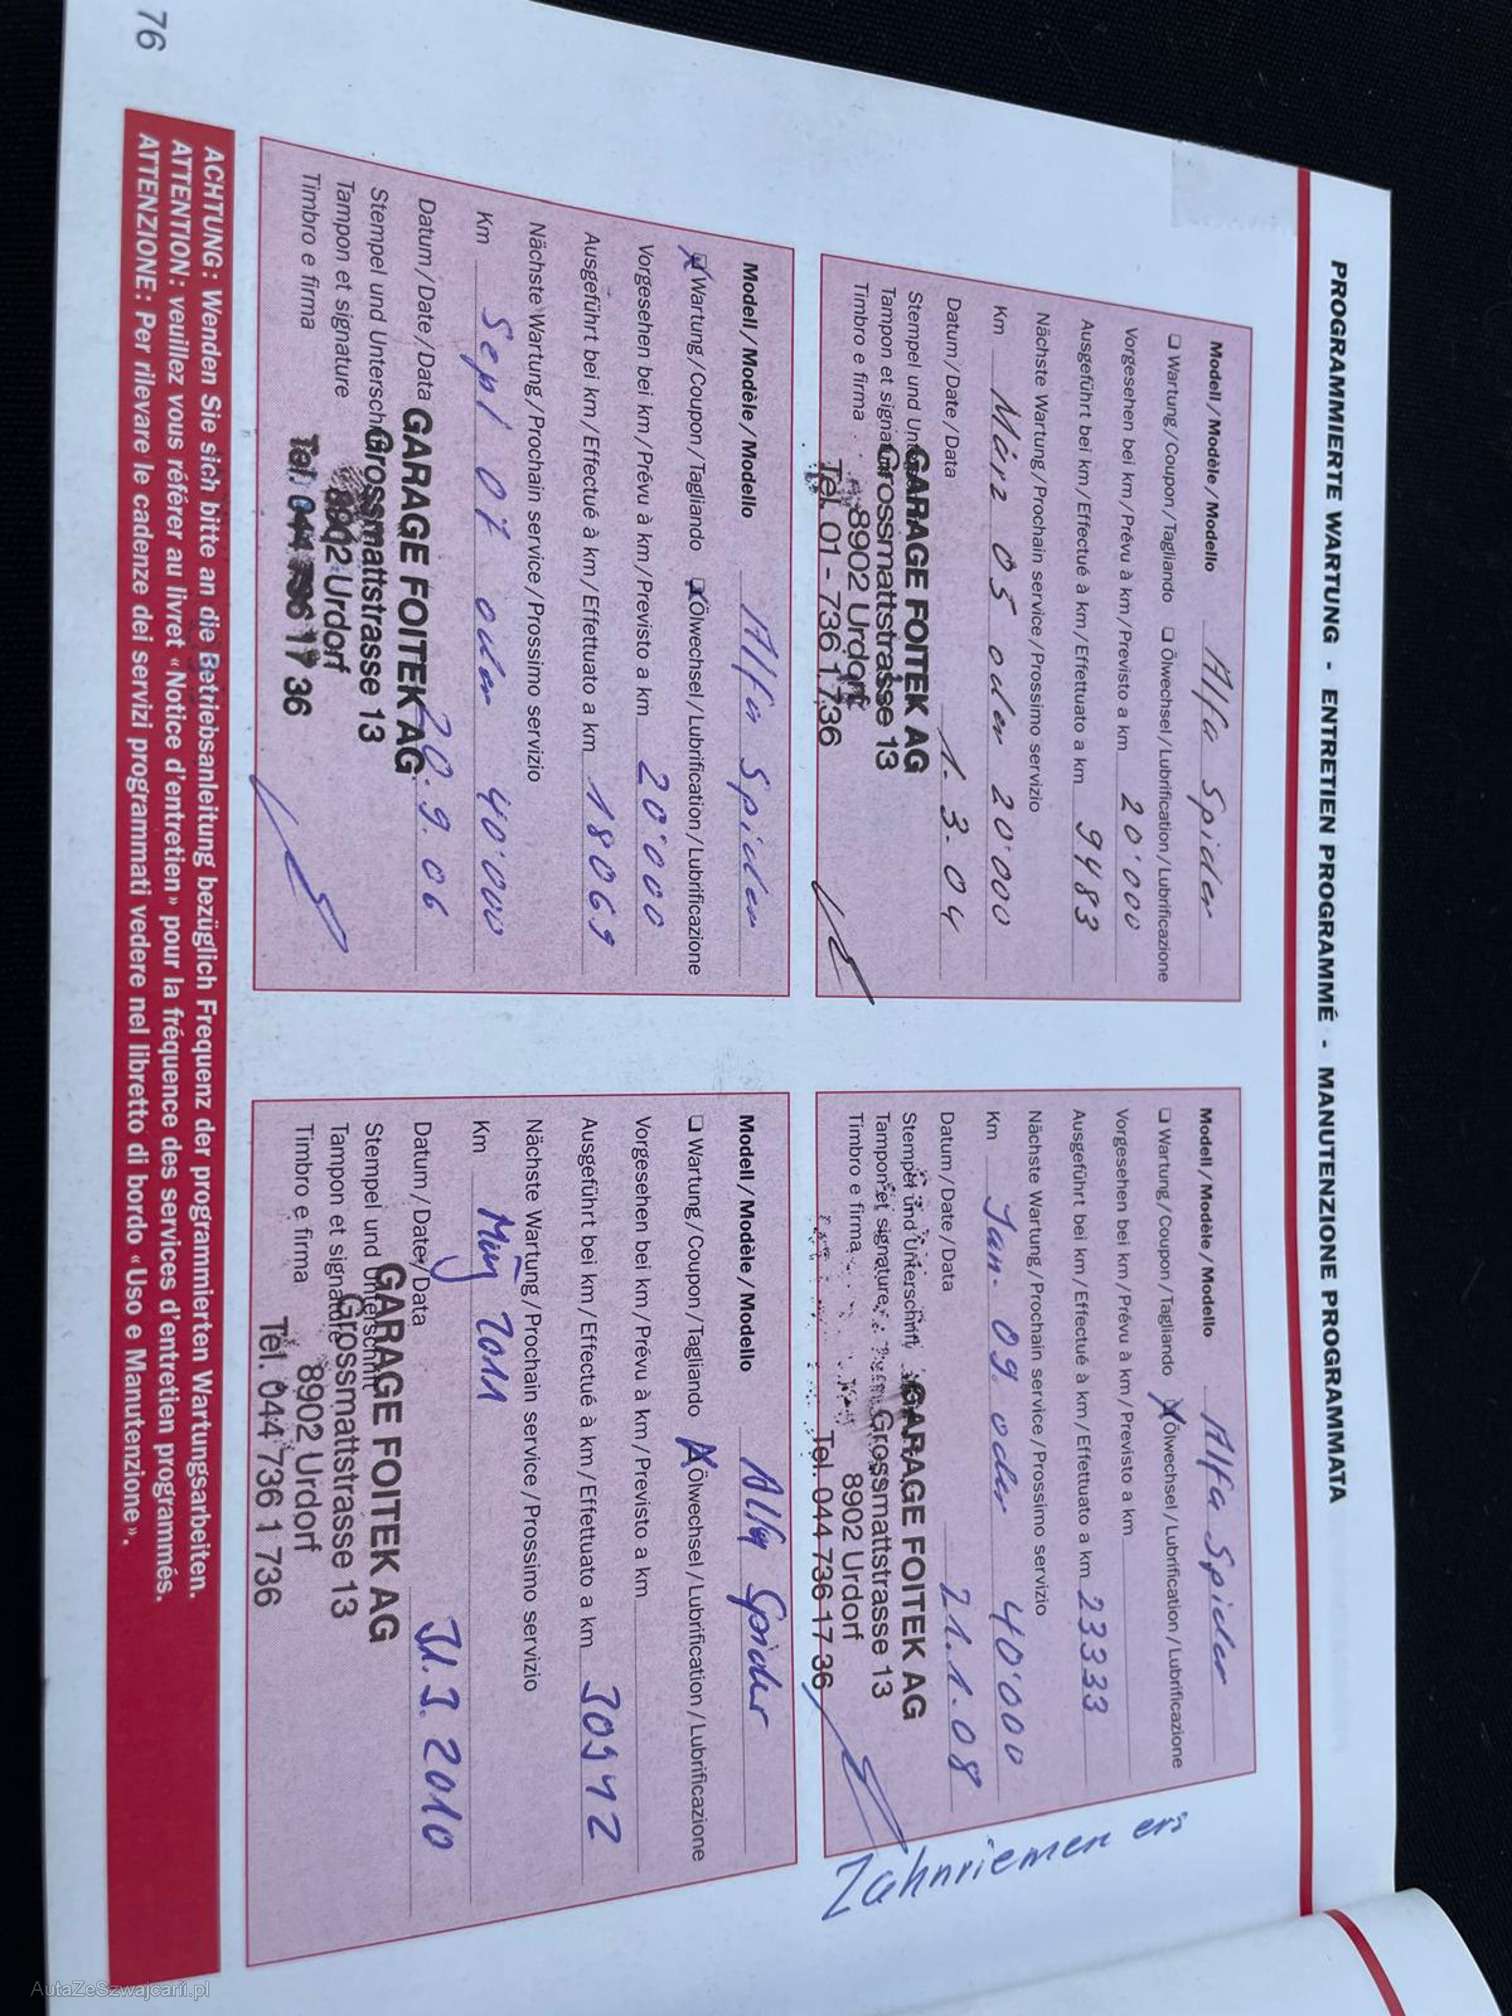 PROGRAMMIERTE WARTUNG - ENTRETIEN PROGRAMMÉ - MANUTENZIONE PROGRAMMATA
Modell / Modèle / Modello Alfa Spider
❑ Wartung / Coupon / Tagliando ❑ Ölwechsel / Lubrification / Lubrificazione
Vorgesehen bei km / Prévu à km / Previsto a km 20'000
Ausgeführt bei km / Effectué à km / Effettuato a km 9483
Nächste Wartung / Prochain service / Prossimo servizio
Km März 05 oder 20'000
Datum / Date / Data 1.3.04
Stempel und
Tampon et
Timbro e firma
GARAGE FOITEK AG
Grossmattstrasse 13
8902 Urdorf
Tel. 01 - 736 17 36
Modell / Modèle / Modello Alfa Spider
❑ Wartung / Coupon / Tagliando ❑ Ölwechsel / Lubrification / Lubrificazione
Vorgesehen bei km / Prévu à km / Previsto a km
Ausgeführt bei km / Effectué à km / Effettuato a km 23333
Nächste Wartung / Prochain service / Prossimo servizio
Km Jan. 09. oder 40'000
Datum / Date / Data 21.1.08
Stempel und Unterschrift
Tampon et signature
Timbro e firma
GARAGE FOITEK AG
Grossmattstrasse 13
8902 Urdorf
Tel. 044 736 17 36
Zahnriemen ers
Modell / Modèle / Modello Alfa Spider
❑ Wartung / Coupon / Tagliando ❑ Ölwechsel / Lubrification / Lubrificazione
Vorgesehen bei km / Prévu à km / Previsto a km 20'000
Ausgeführt bei km / Effectué à km / Effettuato a km 18069
Nächste Wartung / Prochain service / Prossimo servizio
Km Sept 07 oder 40'000
Datum / Date / Data 20.9.06
Stempel und
Tampon et signature
Timbro e firma
GARAGE FOITEK AG
Grossmattstrasse 13
8902 Urdorf
Tel. 044 736 17 36
Modell / Modèle / Modello Alfa Spider
❑ Wartung / Coupon / Tagliando ❑ Ölwechsel / Lubrification / Lubrificazione
Vorgesehen bei km / Prévu à km / Previsto a km
Ausgeführt bei km / Effectué à km / Effettuato a km 30942
Nächste Wartung / Prochain service / Prossimo servizio
Km März 2011
Datum / Date / Data 31.3.2010
Stempel und Unterschrift
Tampon et signature
Timbro e firma
GARAGE FOITEK AG
Grossmattstrasse 13
8902 Urdorf
Tel. 044 736 1 736
ACHTUNG: Wenden Sie sich bitte an die Betriebsanleitung bezüglich Frequenz der programmierten Wartungsarbeiten.
ATTENTION: veuillez vous référer au livret «Notice d'entretien» pour la fréquence des services d'entretien programmés.
ATTENZIONE: Per rilevare le cadenze dei servizi programmati vedere nel libretto di bordo «Uso e Manutenzione».
76
AutaZeSzwajcarii.pl